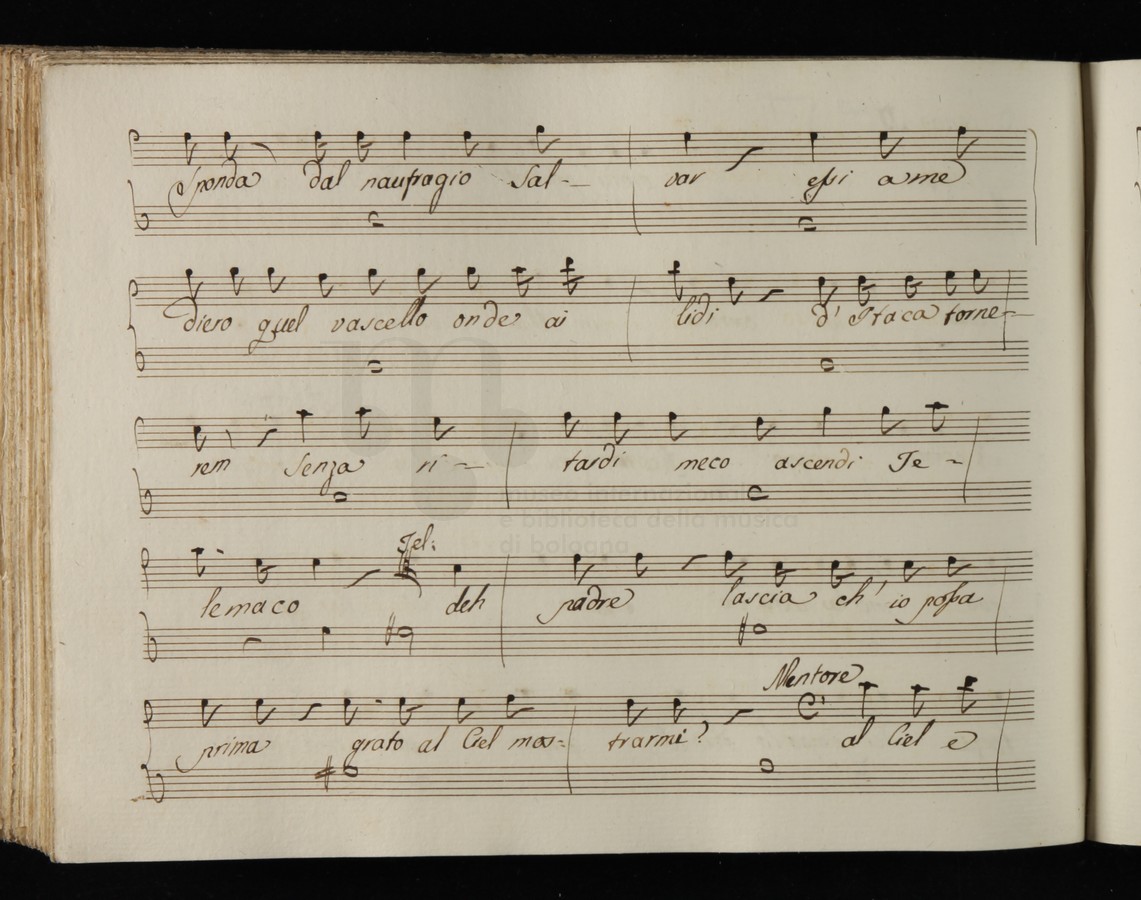 Sponda dal naufragio Sal-- var essi a me
diero quel vascello onde ai lidi d' Itaca torne-
rem Senza ri-- tardi meco ascendi Te-
Tel:
lemaco deh padre lascia ch' io possa
Mentore
prima grato al Ciel mos- trarmi? al Ciel e
museo internazionale
e biblioteca della musica
di bologna